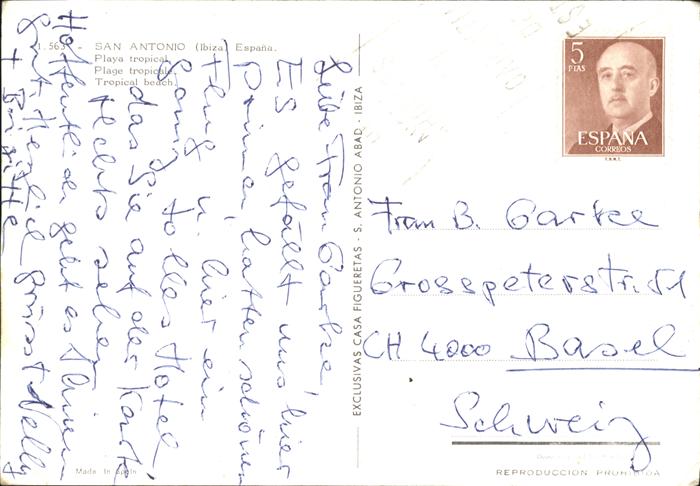 1.563 - SAN ANTONIO (Ibiza) España.
Playa tropical.
Plage tropicale.
Tropical beach.
Liebe Frau Garke,
Es gefällt uns hier
prima, hatten schönen
Flug u. hier ein
ganz tolles Hotel
das Sie auf der Karte
rechts sehen
Hoffentlich geht es Ihnen
gut. Herzlich grüsst Nelly
+ Brigitte
EXCLUSIVAS CASA FIGUERETAS - S. ANTONIO ABAD - IBIZA
5
PTAS
ESPAÑA
CORREOS
F.N.M.T.
Frau B. Garke
Grosspeterstr. 51
CH 4000 Basel
Schweiz
Made in Spain
REPRODUCCION PROHIBIDA